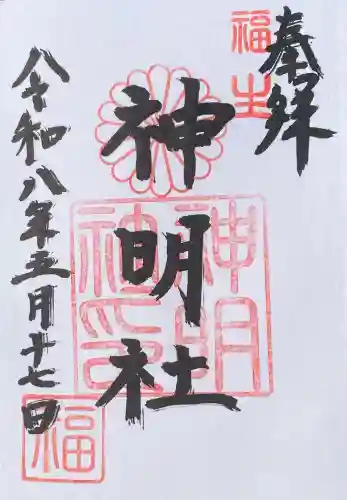 奉拝
福生
神明社
神明社印
令和八年五月十七日
福